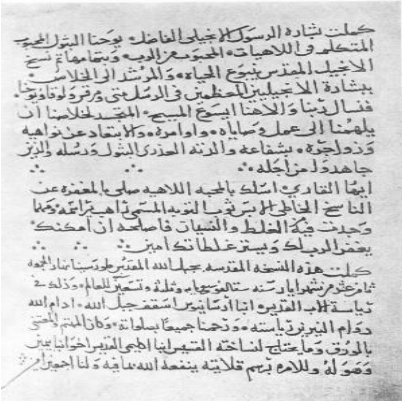 كملت بشارة الرسول الانجيلي الفاضل يوحنا البتول المحبوب
المتكلم في اللاهيات المحبوب من الرب وبتمامها تم نسخ
الانجيل المقدس ينبوع الحياة والمرشد الى الخلاص
بشارة الانجيليين المعظمين في الرسل متى ومرقس ولوقا ويوحنا
فنسال ربنا والاهنا ايسوع المسيح المتجسد لخلاصنا ان
يلهمنا الى عمل وصاياه واوامره والابتعاد عن نواهيه
وزواجره بشفاعة والدته العذرى البتول ورسله والذين
جاهدوا من اجله
ايها القاري اسلك بالمحبه اللاهيه صلي بالمغفره عن
الناسخ الخاطي الابس ثوب التوبه المسمى
وجدت فيه الغلط والنسيان فاصلحه ان امكنك
يغفر الرب لك ويستر غلطاتك امين
كملت هذه النسخه المقدسه بجبل الله المقدس طورسينا نهار الجمعه
من شهر ايار سنه ستة الف للعالم وذلك في
رياسة الاب القديس انبا اسقف جبل الله ادام الله
رياسته ورحمنا جميعا بصلواته وكان المهتم
بالورق وما يحتاج لنساخته القديس
وهو له وللامره برسم قلايته ينفعه الله بما فيه ولنا اجمعين امين